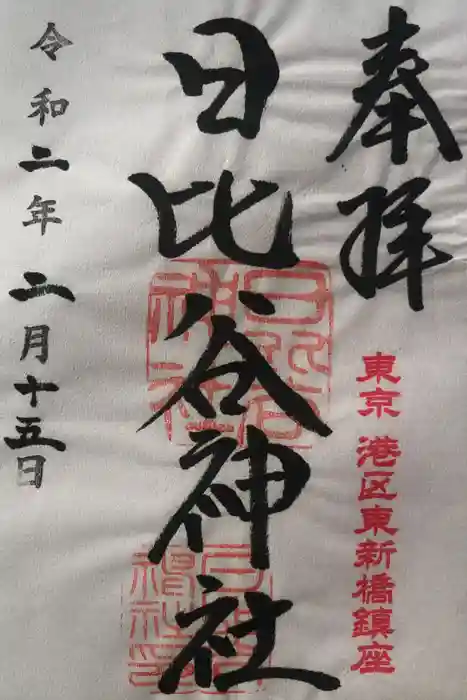 奉拝
東京 港区東新橋鎮座
日比谷神社
日比谷神社
令和二年 二月十五日